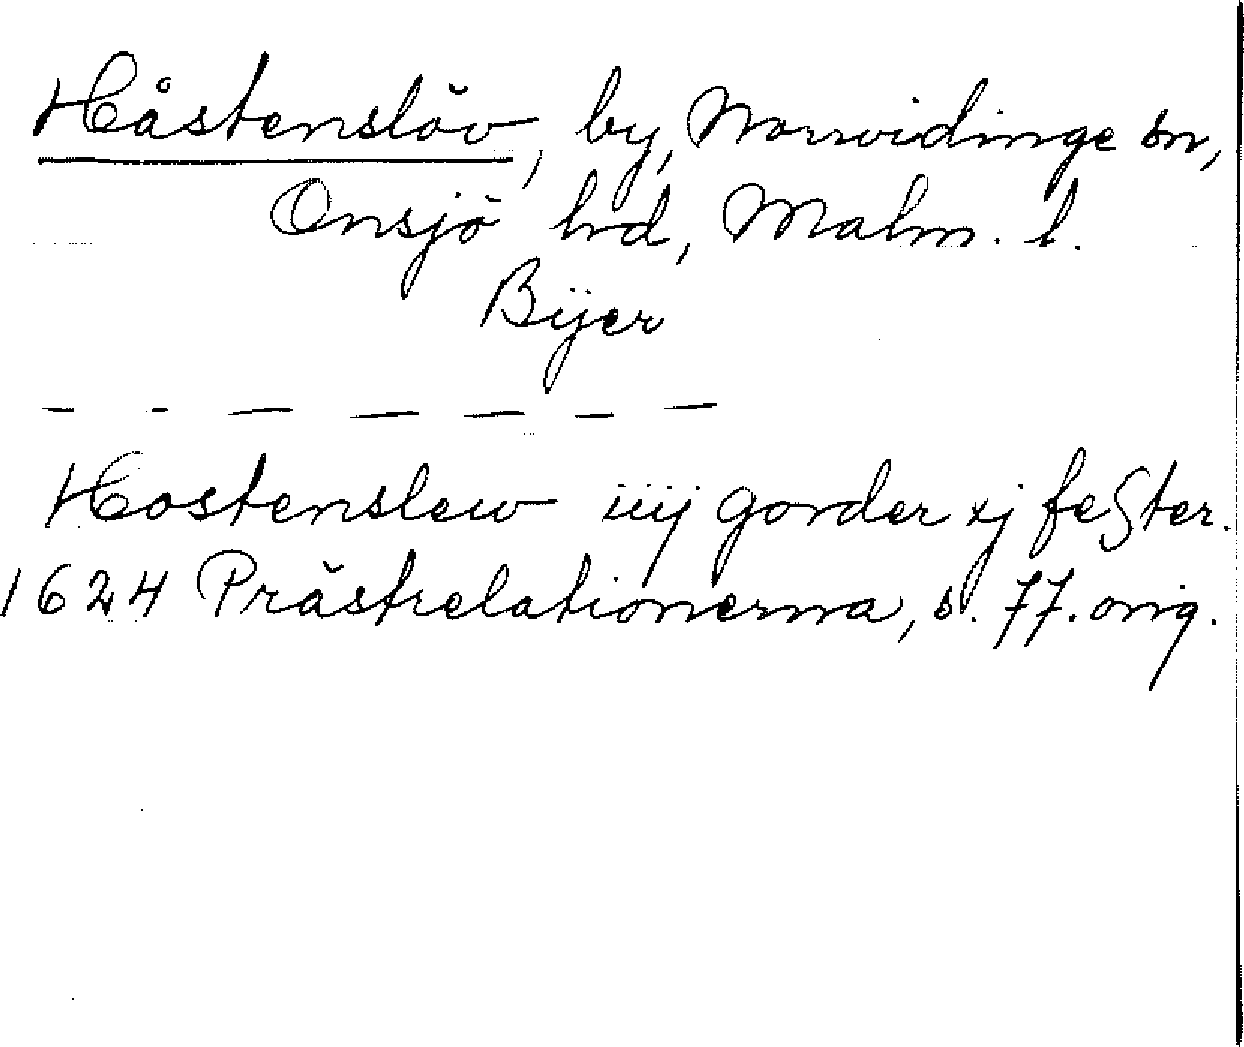 Håstenslöv, by, Norrvidinge sn,
Onsjö hrd, Malm. l.
Bÿer
- - - - - - -
Hostenslew iiij gorder xj feſter.
1624 Prästrelationerna, s. 77. orig.